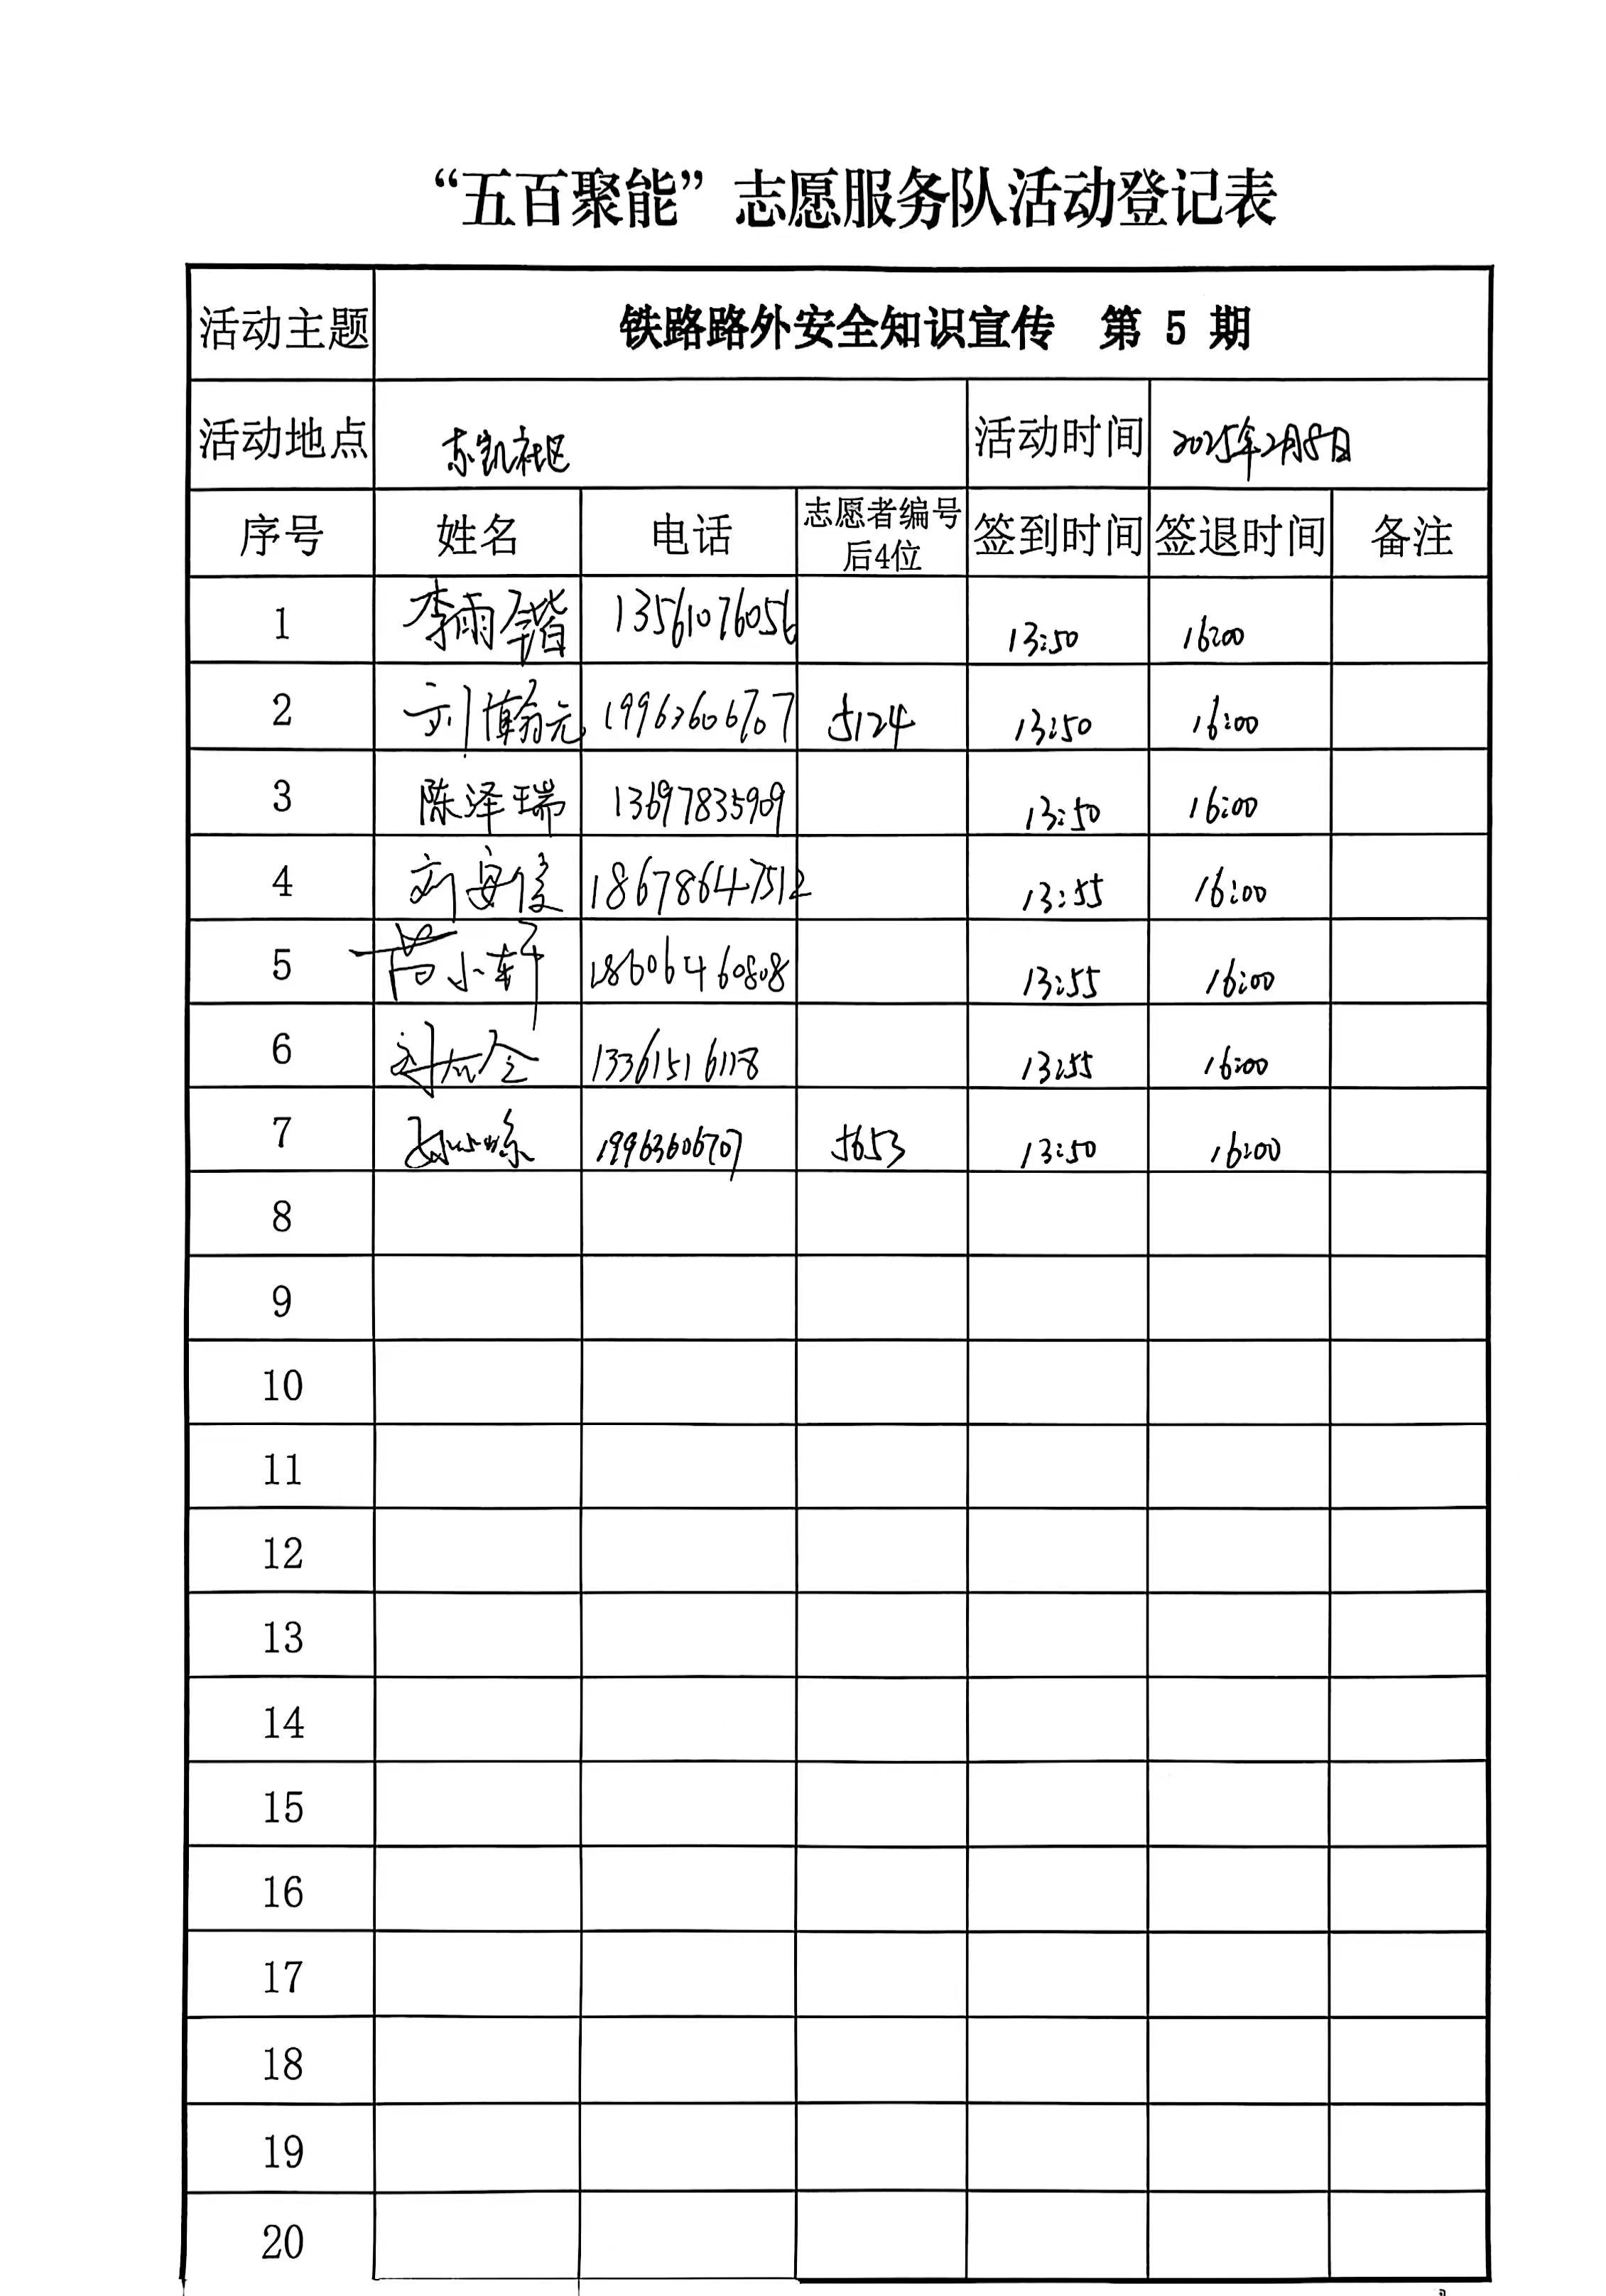 “五百聚能”志愿服务队活动登记表
活动主题 铁路路外安全知识宣传 第 5 期
活动地点 东凯社区 活动时间 2025年2月8日
序号 姓名 电话 志愿者编号后4位 签到时间 签退时间 备注
1 李雨锴 13561076056 13:50 16:00
2 刘博翰元 19963606707 5124 13:50 16:00
3 陈泽瑞 13697835909 13:50 16:00
4 刘安俊 18678647512 13:55 16:00
5 小轩 18606460808 13:55 16:00
6 13361516118 13:55 16:00
7 19963606707 5653 13:50 16:00
8
9
10
11
12
13
14
15
16
17
18
19
20